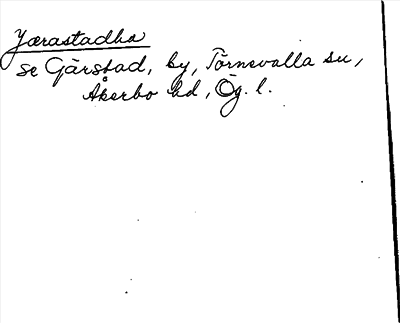 Jærastadha
se Gärstad, by, Törnevalla sn,
Åkerbo hd, Ög. l.